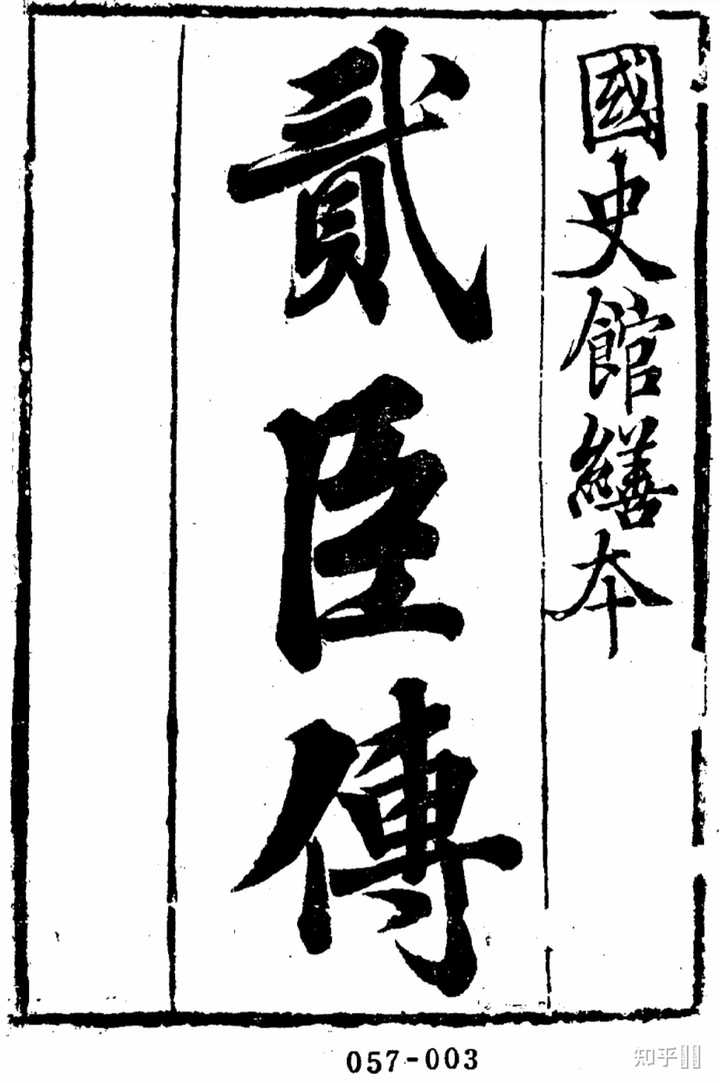 國史館繕本
貳臣傳
057-003
知乎